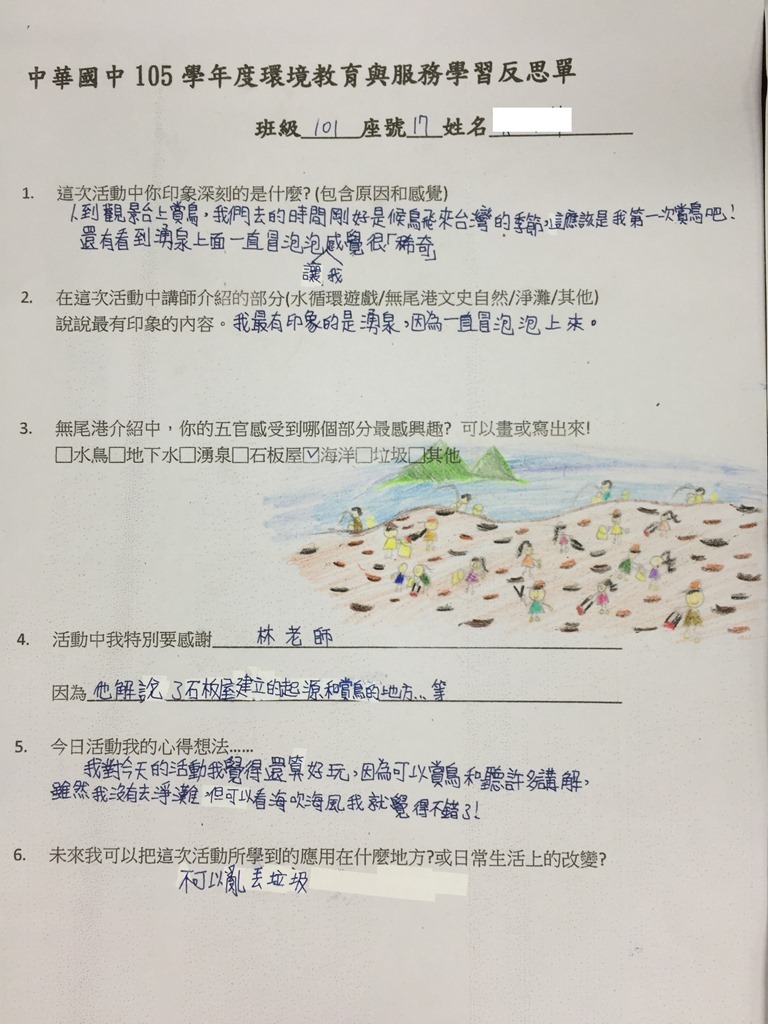 中華國中 105 學年度環境教育與服務學習反思單
班級 101 座號 17 姓名
1. 這次活動中你印象深刻的是什麼? (包含原因和感覺)
到觀景台上賞鳥，我們去的時間剛好是候鳥飛來台灣的季節，這應該是我第一次賞鳥吧！
還有看到湧泉上面一直冒泡泡感覺很「稀奇」
讓我
2. 在這次活動中講師介紹的部分(水循環遊戲/無尾港文史自然/淨灘/其他)
說說最有印象的內容。我最有印象的是湧泉，因為一直冒泡泡上來。
3. 無尾港介紹中，你的五官感受到哪個部分最感興趣? 可以畫或寫出來!
□水鳥□地下水□湧泉□石板屋☑海洋□垃圾□其他
4. 活動中我特別要感謝 林老師
因為 他解說了石板屋建立的起源和賞鳥的地方…等
5. 今日活動我的心得想法……
我對今天的活動我覺得還算好玩，因為可以賞鳥和聽許多講解，
雖然我沒有去淨灘，但可以看海吹海風我就覺得不錯了！
6. 未來我可以把這次活動所學到的應用在什麼地方?或日常生活上的改變?
不可以亂丟垃圾